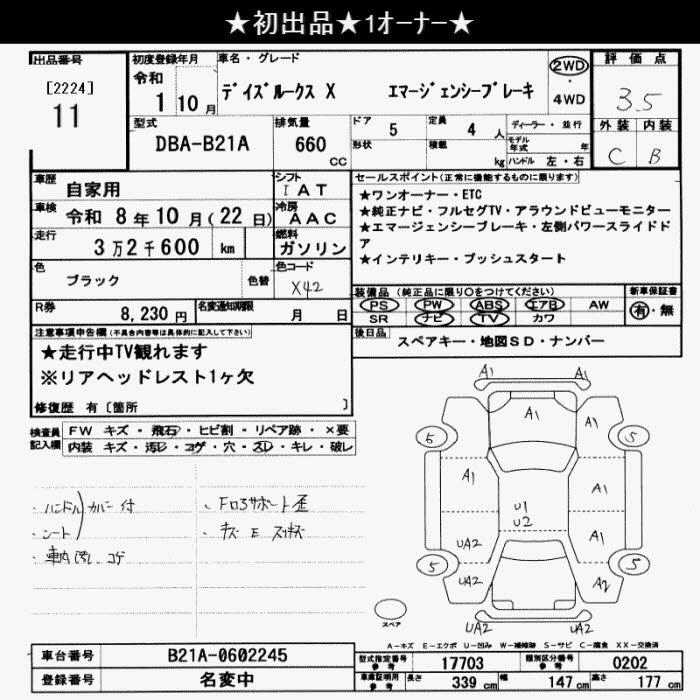 ★初出品★1オーナー★
出品番号
[2224]
11
初度登録年月
令和
1 10 月
車名・グレード
デイズルークス X エマージェンシーブレーキ
2WD
・
4WD
評価点
3.5
外装 内装
C B
型式
DBA-B21A
排気量
660
cc
ドア 5
形状
定員 4 人
積載 kg
ディーラー・並行
モデル年式 年
ハンドル 左・右
車歴 自家用
シフト
I A T
車検 令和 8 年 10 月 ( 22 日)
冷房
A A C
走行 3 万 2 千 600 km
燃料
ガソリン
色 ブラック 色替
色コード
X42
R券 8,230 円
名変通知期限 月 日
セールスポイント(正常に機能するものに限ります)
★ワンオーナー・ETC
★純正ナビ・フルセグTV・アラウンドビューモニター
★エマージェンシーブレーキ・左側パワースライドド
ア
★インテリキー・プッシュスタート
装備品(純正品に限り○をつけてください)
PS PW ABS エアB AW
SR ナビ TV カワ
新車保証書
有・無
後日品 スペアキー・地図SD・ナンバー
注意事項申告欄(不具合内容等は具体的に記入して下さい)
★走行中TV観れます
※リアヘッドレスト1ヶ欠
修復歴 有〔箇所 〕
検査員記入欄
FW キズ・飛石・ヒビ割・リペア跡・×要
内装 キズ・汚レ・コゲ・穴・スレ・キレ・破レ
・ハンドル カバー付
・シート
・車内汚し コゲ
・Fロアサポート歪
・キズ E スリキズ
A1 A1
A1 A1
5 5
A1 A1
U1
U2
UA2 A1
5 5
UA2 A2
UA2 UA2
スペア
A-キズ E-エクボ U-凹み W-補修跡 S-サビ C-腐食 XX-交換済
車台番号 B21A-0602245
登録番号 名変中
型式指定番号 参考 17703
類別区分番号 参考 0202
車庫証明用 参考 長さ 339 cm 幅 147 cm 高さ 177 cm